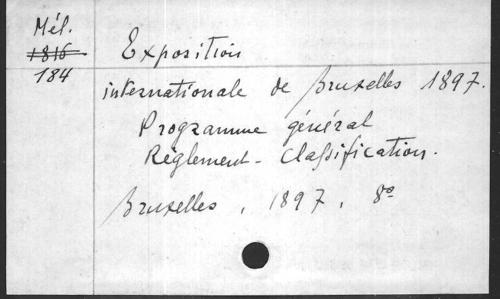 Mél.
1816
184
Exposition
internationale de Bruxelles 1897.
Programme général
Règlement - Classification.
Bruxelles, 1897, 8º